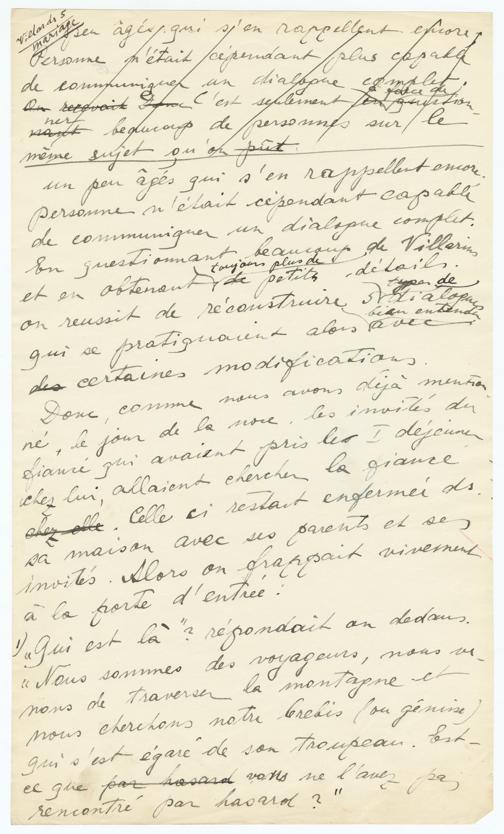 Villards 5
mariage
peu âgés, qui s'en rappellent encore,
Personne n'était cépendant plus capable
de communiquer un dialogue complet.
à force de
On recevait Donc C'est seulement en question-
ner
nant beaucoup de personnes sur le
même sujet qu'on put.
un peu âgés qui s'en rappellent encore.
Personne n'était cépendant capable
de communiquer un dialogue complet.
En questionnant beaucoup de Villarins
toujours plus de
et en obtenant de petits détails.
types de
on reussit de réconstruire 5 dialogues
bien entendu
qui se pratiquaient alors avec
des certaines modifications.
Donc, comme nous avons déjà mention-
né, le jour de la noce, les invités du
fiancé qui avaient pris le I déjeuner
chez lui, allaient chercher la fiancé
chez elle. Celle ci restait enfermée ds.
sa maison avec ses parents et ses
invités. Alors on frappait vivement
à la porte d'entrée:
1) "Qui est là"? répondait on dedans.
"Nous sommes des voyageurs, nous ve-
nons de traverser la montagne et
nous cherchons notre brebis (ou génisse)
qui s'est égaré de son troupeau. Est-
ce que par hasard vous ne l'avez pas
rencontré par hasard?"